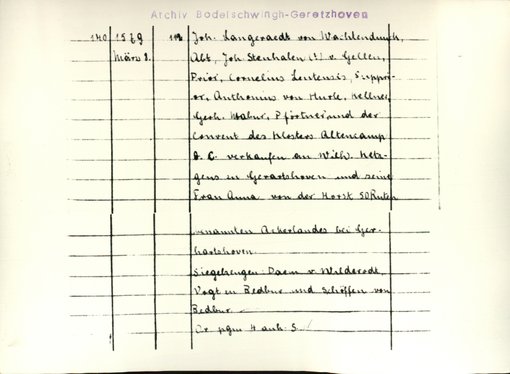 Archiv Bodelschwingh-Geretzhoven
140 1569 112 Joh. Langeraedt von Wachlendunck,
März 2. Abt, Joh. Stenhalen (!) v. Gellen,
Prior, Cornelius Leutensis, Suppri-
or, Anthonius von Hurle, Kellner,
Gerh. Mabur, Pförtner und der
Convent des Klosters Altencamp
O. C. verkaufen an Wilh. Ketz-
gens in Gerartshoven und seine
Frau Anna von der Horst 50 Ruten
genannten Ackerlandes bei Ger-
hartshoven.
Siegelzeugen: Daem v. Wilderodt,
Vogt in Bedbur und Schöffen von
Bedbur.
Or. pgm 4 anh. S.